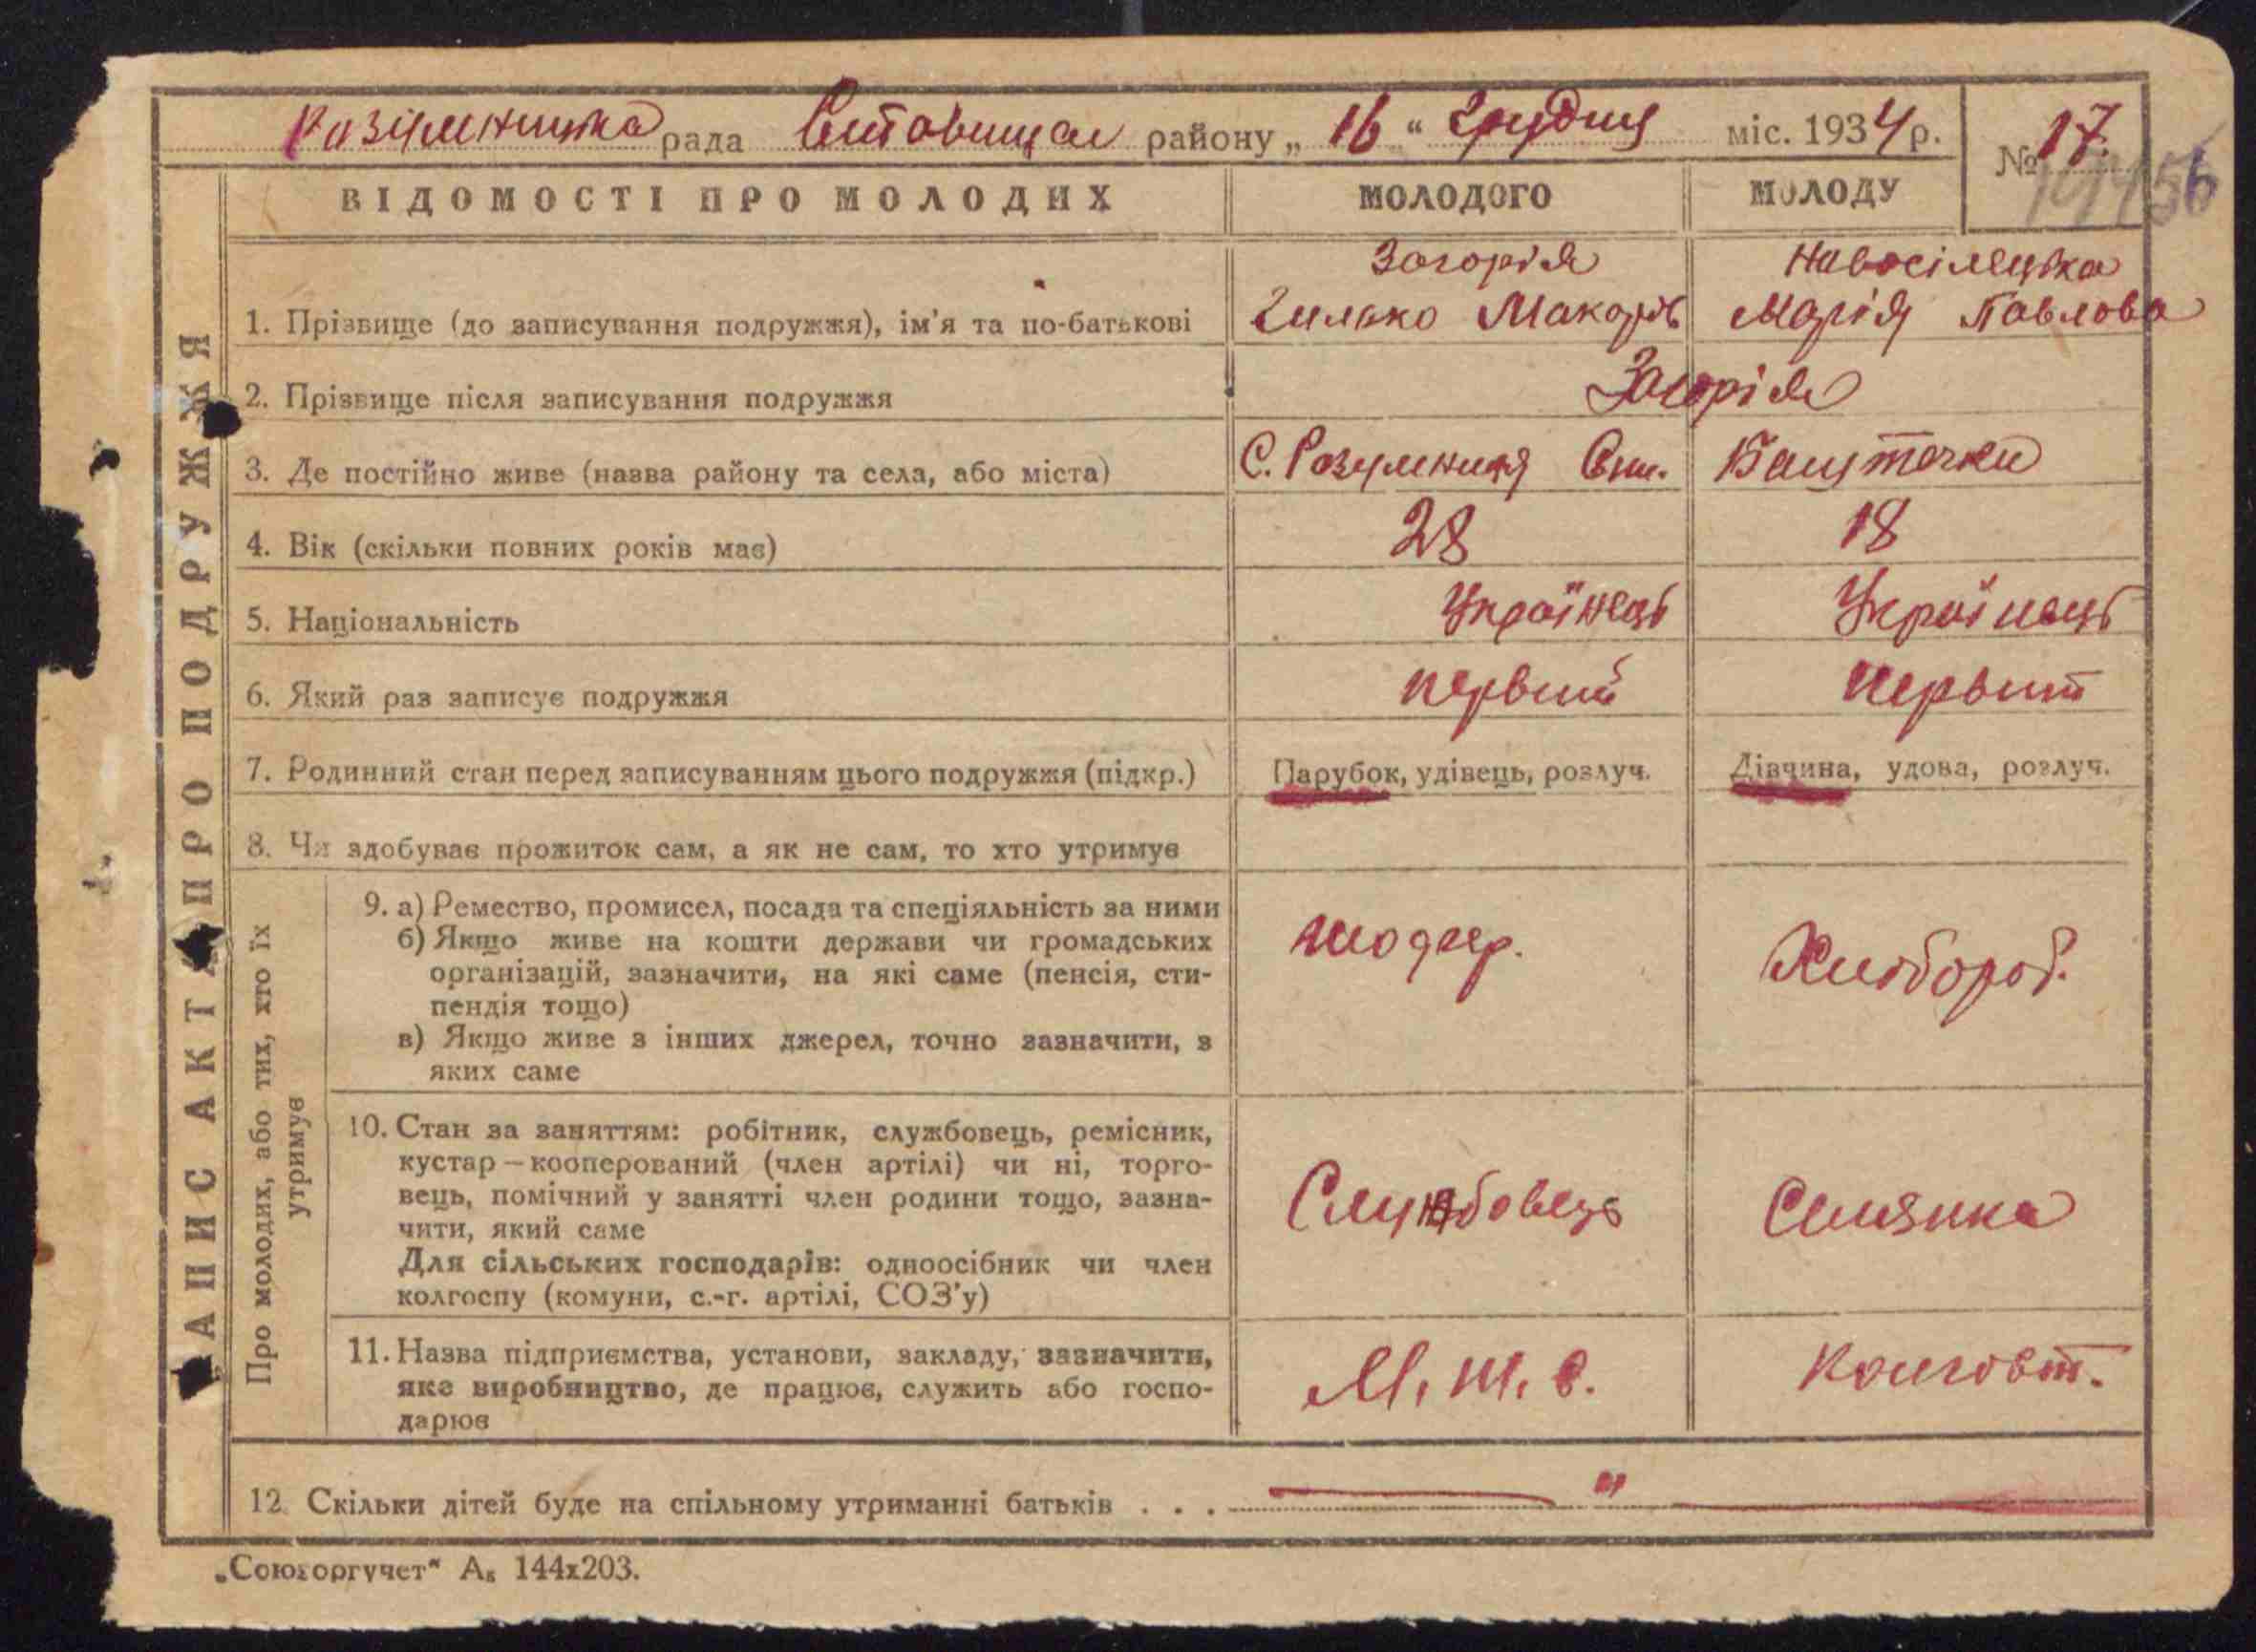 Розумницька рада Ситовищан району „ 16 “ Грудня міс. 1934 р.
№ 17.
ВІДОМОСТІ ПРО МОЛОДИХ
МОЛОДОГО
МОЛОДУ
ЗАПИС АКТА ПРО ПОДРУЖЖЯ
1. Прізвище (до записування подружжя), ім'я та по-батькові
Загорія
Гилько Макарів
Новосілецька
Марія Павлова
2. Прізвище після записування подружжя
Загорія
3. Де постійно живе (назва району та села, або міста)
С. Розумниця
Баштечки
4. Вік (скільки повних років має)
28
18
5. Національність
Українець
Українець
6. Який раз записує подружжя
Первий
Первий
7. Родинний стан перед записуванням цього подружжя (підкр.)
Парубок, удівець, розлуч.
Дівчина, удова, розлуч.
8. Чи здобуває прожиток сам, а як не сам, то хто утримує
Про молодих, або тих, хто їх
утримує
9. а) Ремество, промисел, посада та спеціяльність за ними
б) Якщо живе на кошти держави чи громадських
організацій, зазначити, на які саме (пенсія, сти-
пендія тощо)
в) Якщо живе з інших джерел, точно зазначити, з
яких саме
Шофер.
Хлібороб.
10. Стан за заняттям: робітник, службовець, ремісник,
кустар — кооперований (член артілі) чи ні, торго-
вець, помічний у занятті член родини тощо, зазна-
чити, який саме
Для сільських господарів: одноосібник чи член
колгоспу (комуни, с.-г. артілі, СОЗ'у)
Службовець
Селянка
11. Назва підприємства, установи, закладу, зазначити,
яке виробництво, де працює, служить або госпо-
дарює
М. Т. С.
12. Скільки дітей буде на спільному утриманні батьків . . .
„Союзоргучет“ А₅ 144х203.